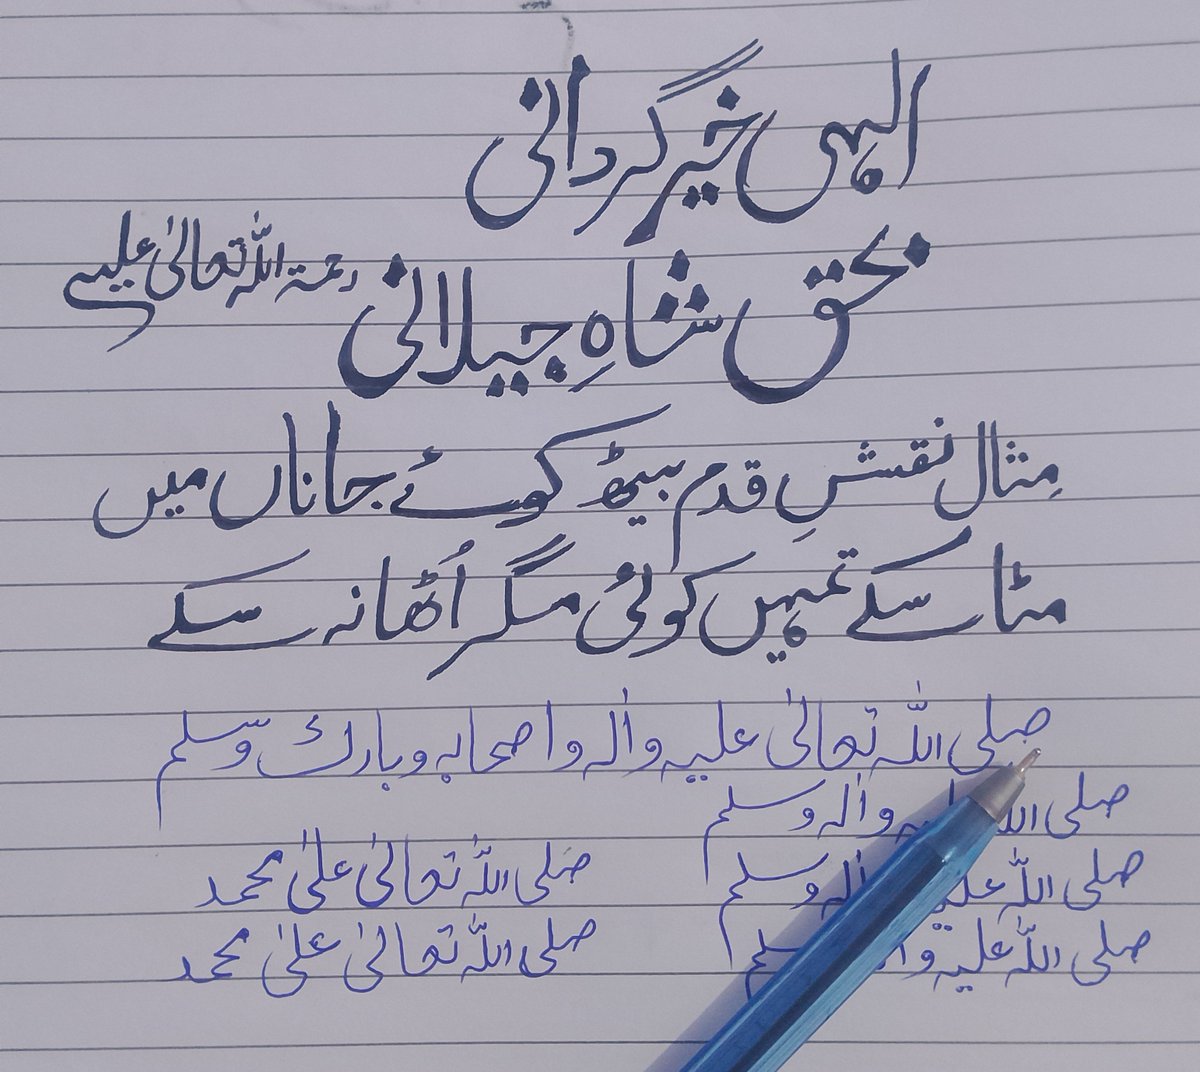 الہی خیر گردانی
بحق شاہِ جیلانی رحمۃ اللہ تعالیٰ علیہ
مِثال نقشِ قدم بیٹھ کوئے جاناں میں
مٹا سکے تمہیں کوئی مگر اُٹھا نہ سکے
صلی اللہ تعالیٰ علیہ واٰلہ واصحابہ وبارک وسلم
صلی اللہ علیہ واٰلہ وسلم
صلی اللہ علیہ واٰلہ وسلم صلی اللہ تعالیٰ علیٰ محمد
صلی اللہ علیہ و صلی اللہ تعالیٰ علیٰ محمد